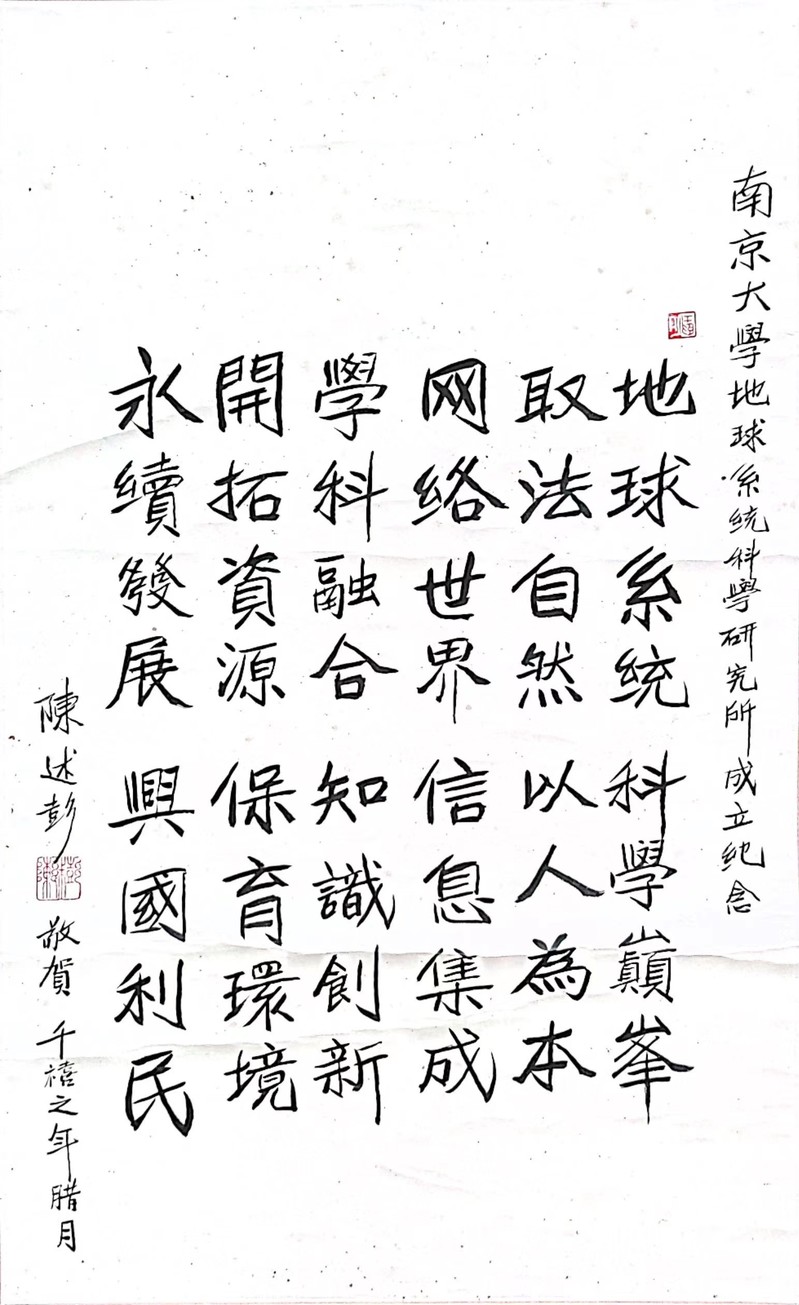 南京大學地球系统科學研究所成立纪念
地球系统 科學巔峯
取法自然 以人為本
网络世界 信息集成
學科融合 知識創新
開拓資源 保育環境
永續發展 興國利民
陳述彭 敬賀 千禧之年腊月